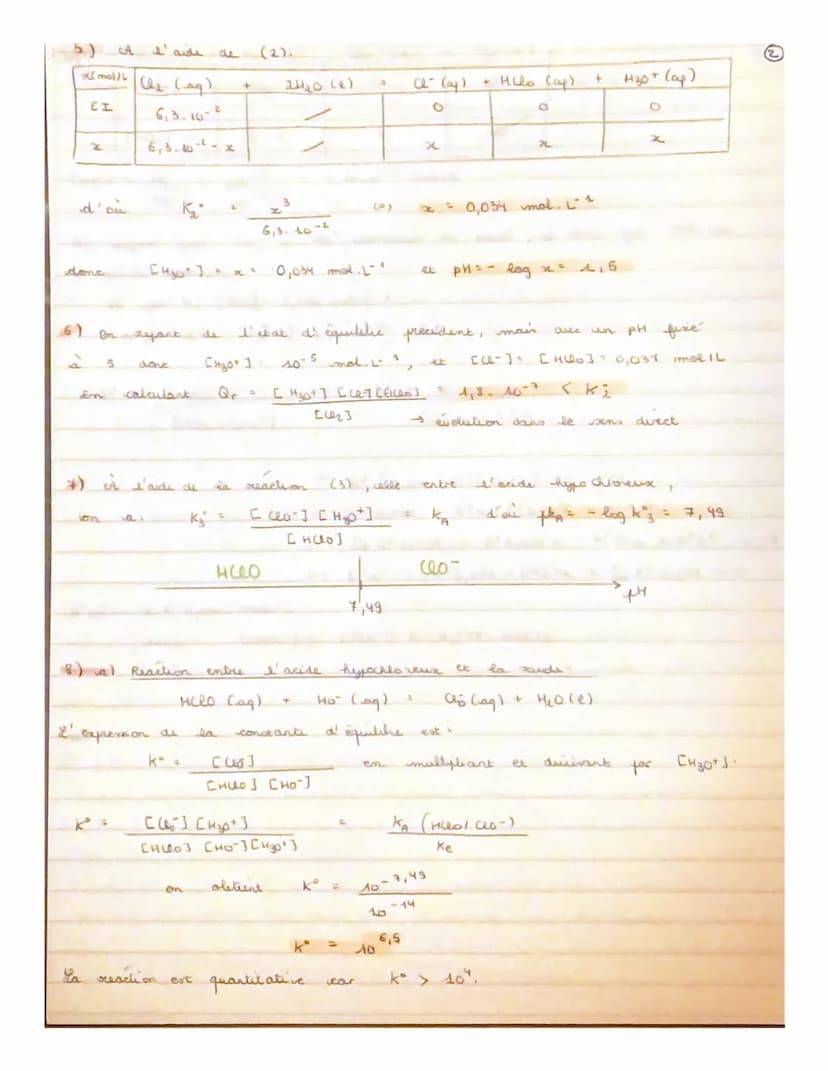 5) A l'aide de (2).
②
x(mol/L Cl₂ (aq) + 2H₂O (l) = Cl⁻ (aq) + HClO (aq) + H₃O⁺ (aq)
EI 6,3.10⁻² / 0 0 0
x 6,3.10⁻² - x / x x x
d'où K₂° = x³ / 6,3.10⁻² (=) x = 0,034 mol.L⁻¹
donc [H₃O⁺] = x = 0,034 mol.L⁻¹ et pH = - log x = 1,5
6) En partant de l'état d'équilibre précédent, mais avec un pH fixé
à 5 donc [H₃O⁺] = 10⁻⁵ mol.L⁻¹, et [Cl⁻] = [HClO] = 0,034 mol/L
En calculant Qr = [H₃O⁺] [Cl⁻] [HClO] / [Cl₂] = 1,8.10⁻⁷ < K₂°
→ évolution dans le sens direct
7) À l'aide de la réaction (3), celle entre l'acide hypochloreux,
on a: K₃° = [ClO⁻] [H₃O⁺] / [HClO] = kA d'où pkA = - log k₃° = 7,49
HClO ClO⁻
7,49 pH
8) a) Reaction entre l'acide hypochloreux et la soude:
HClO (aq) + HO⁻ (aq) = ClO⁻ (aq) + H₂O (l)
L'expression de la constante d'équilibre est:
k° = [ClO⁻] / [HClO] [HO⁻] en multipliant et divisant par [H₃O⁺].
K° = [ClO⁻] [H₃O⁺] / [HClO] [HO⁻] [H₃O⁺] = kA (HClO/ClO⁻) / Ke
on obtient k° = 10⁻⁷,⁴⁹ / 10⁻¹⁴
k° = 10⁶,⁵
La reaction est quantitative car k° > 10⁴.